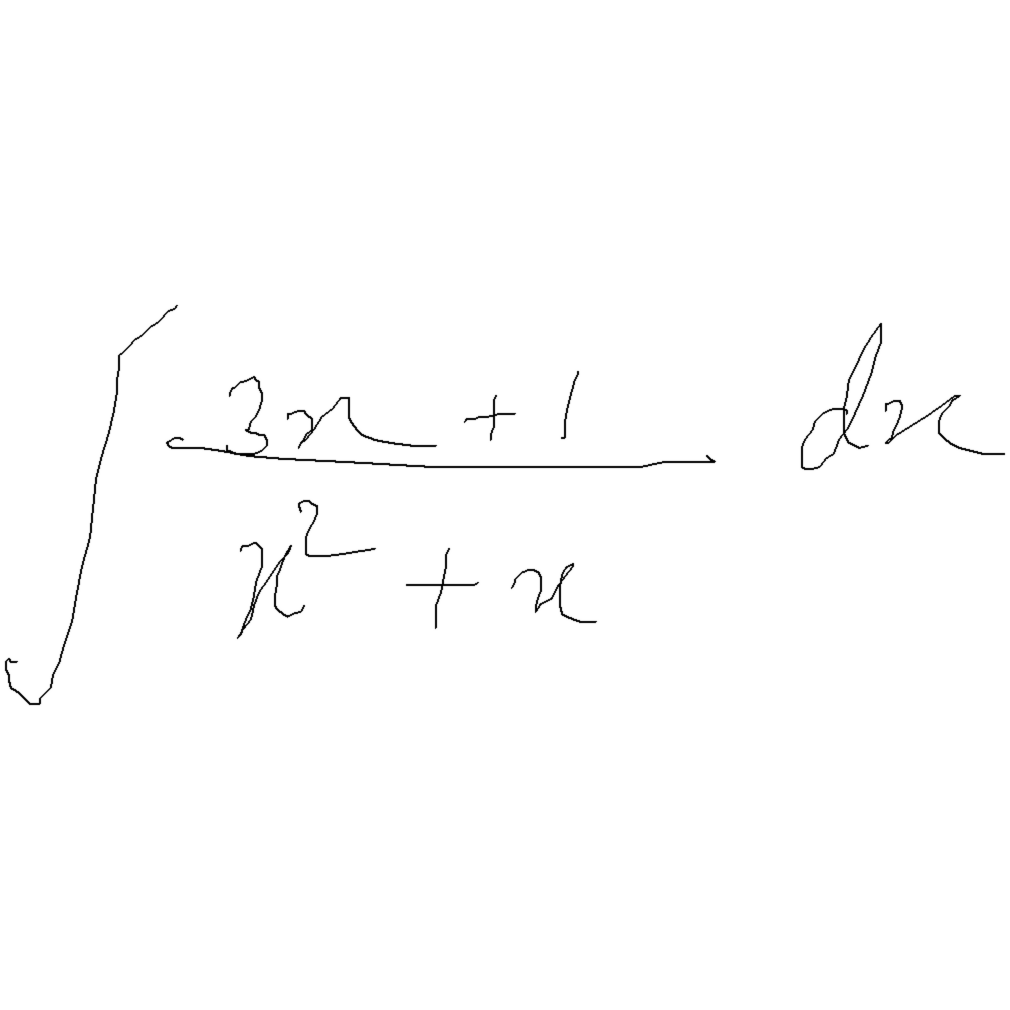 ∫ (3x + 1)/(x² + x) dx